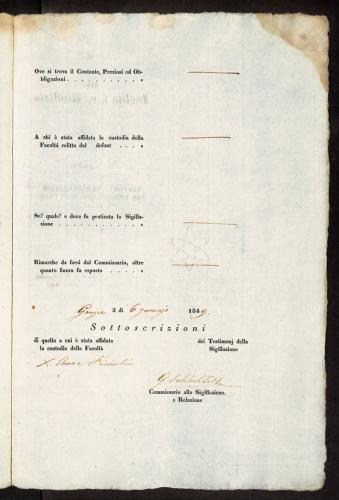 Ove si trova il Contante, Preziosi ed Ob-
bligazioni . . . . . . . . . . .
A chi è stata affidata la custodia della
Facoltà relitta dal defont . . . .
Se? quale? e dove fu praticata la Sigilla-
zione . . . . . . . . . . . .
Rimarche da farsi dal Commissario, oltre
quanto finora fu esposto . . . . .
li di 6 gennajo 1849.
Sottoscrizioni
di quello a cui è stata affidata
la custodia della Facoltà
dei Testimonj della
Sigillazione
X Anna
Commissario alla Sigillazione,
e Relazione